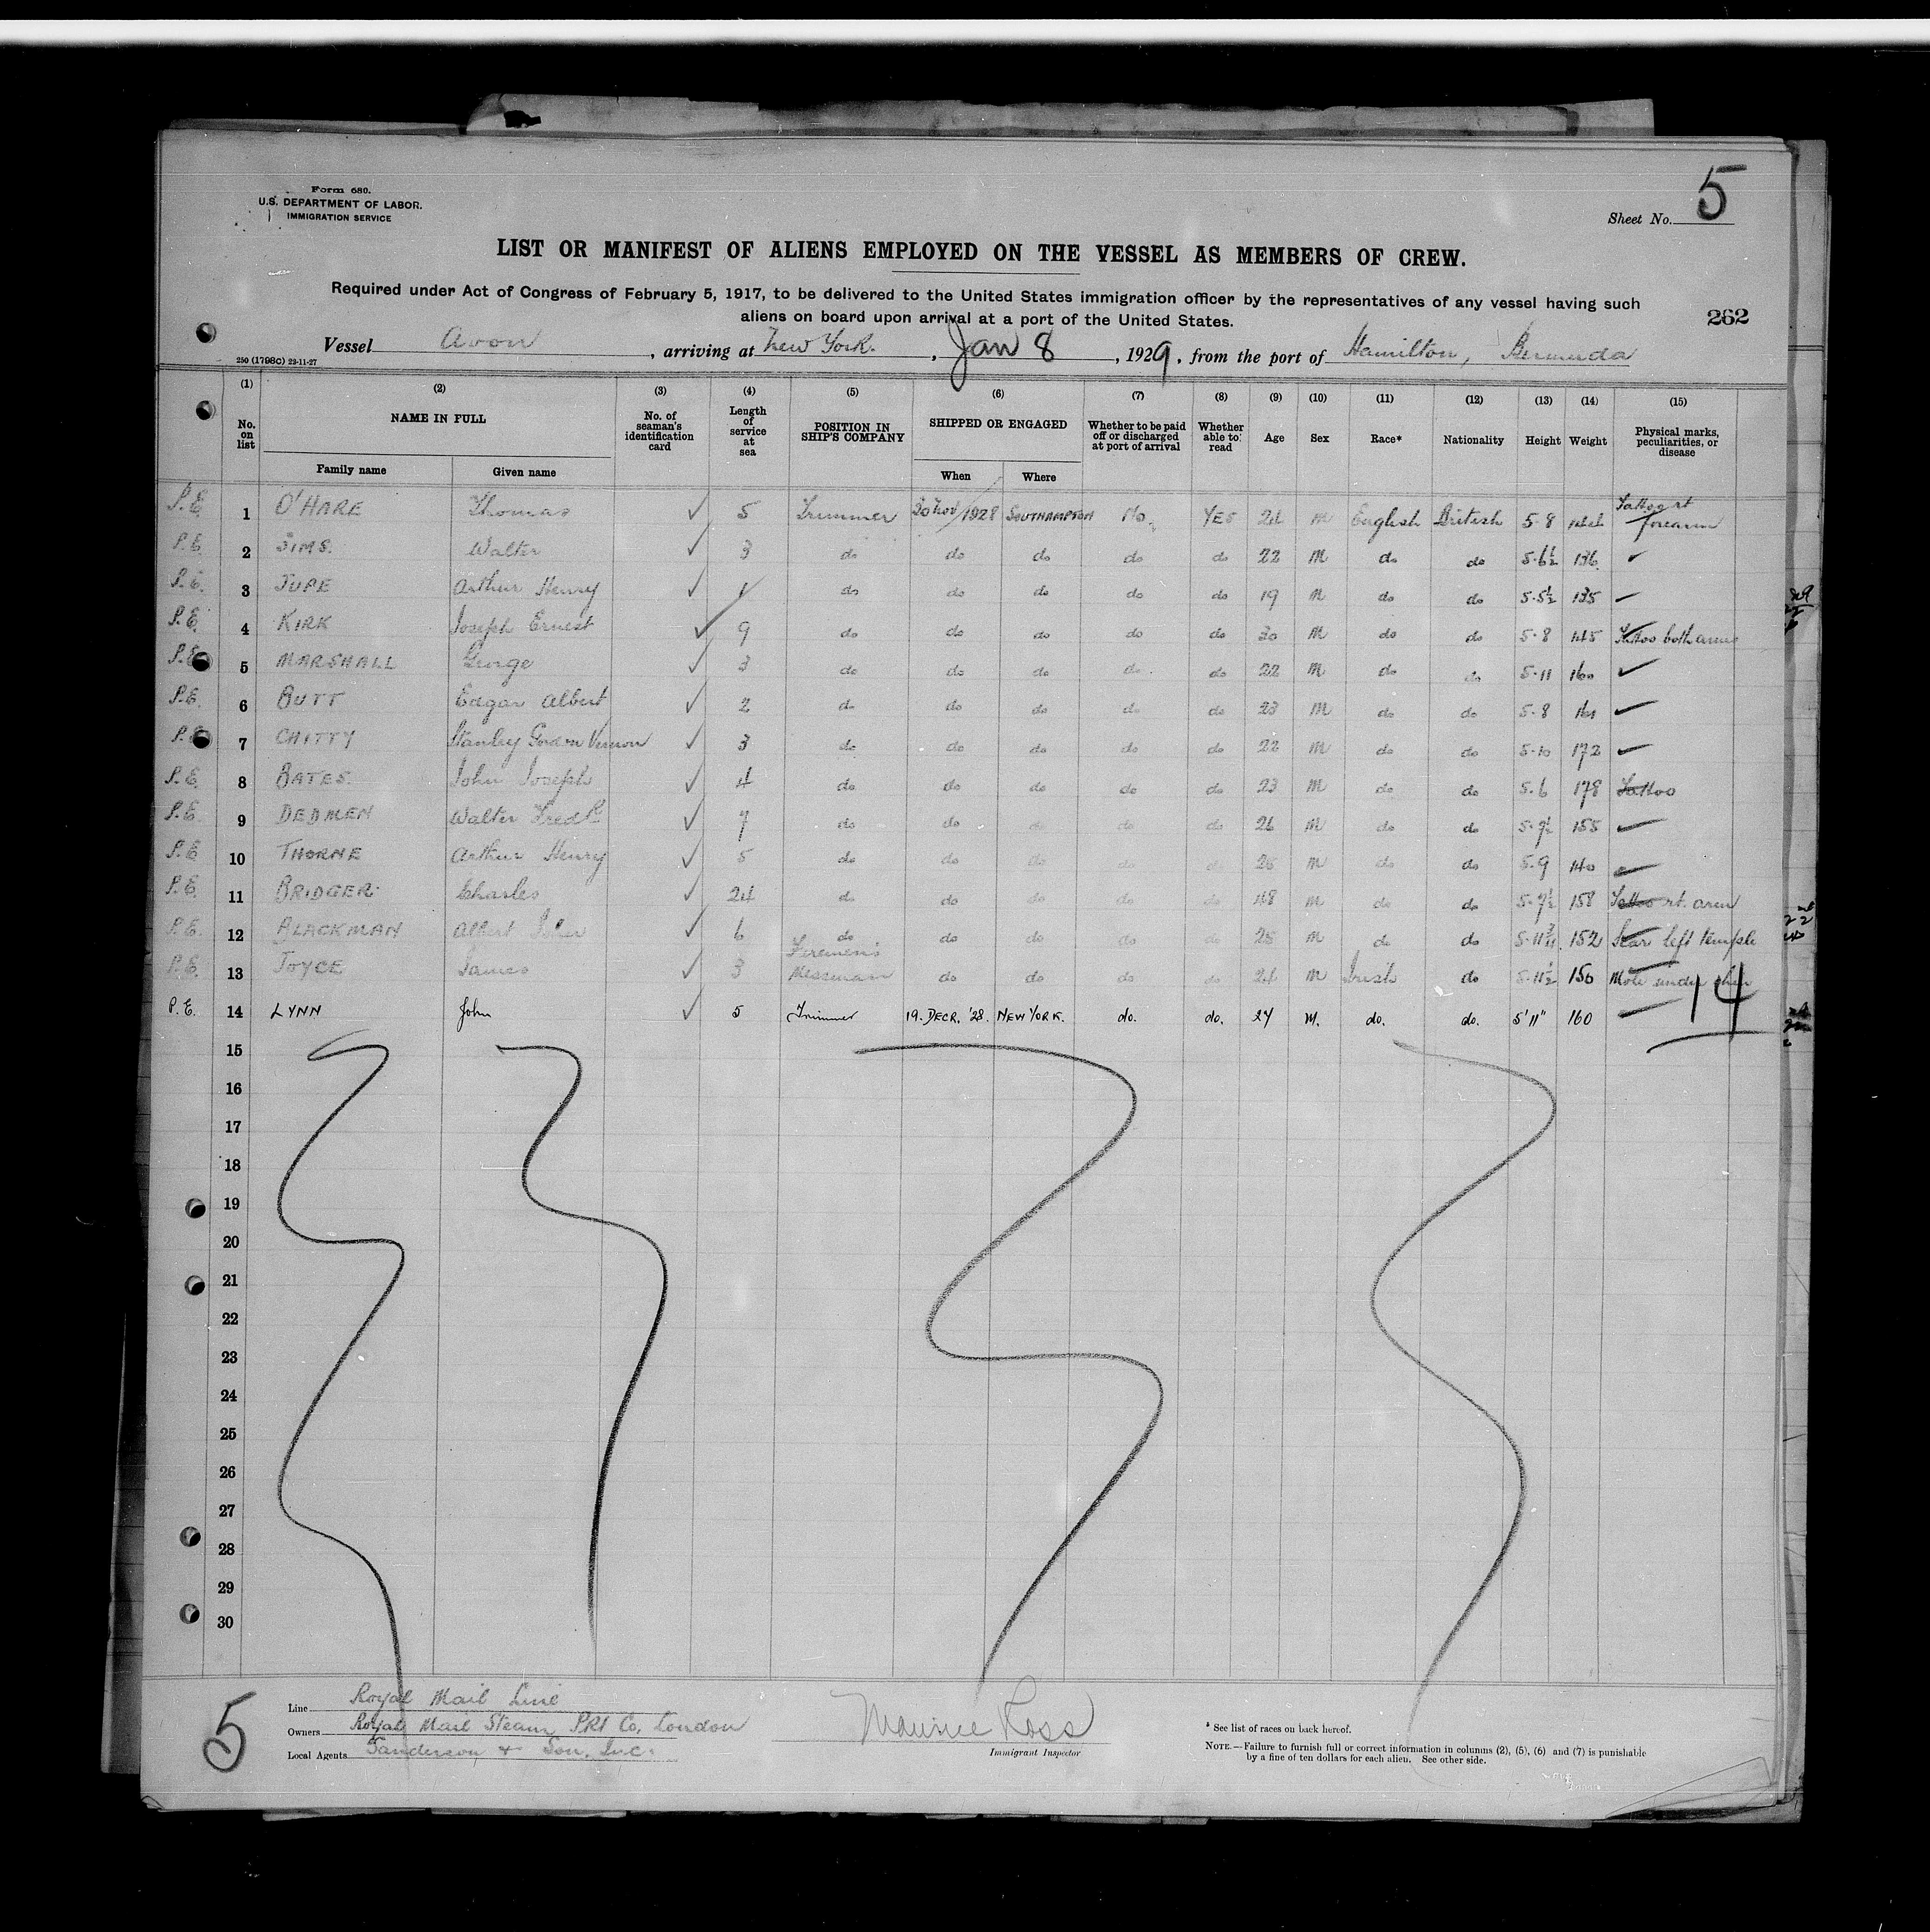 Form 680.
U.S. DEPARTMENT OF LABOR.
IMMIGRATION SERVICE
Sheet No. 5
LIST OR MANIFEST OF ALIENS EMPLOYED ON THE VESSEL AS MEMBERS OF CREW.
Required under Act of Congress of February 5, 1917, to be delivered to the United States immigration officer by the representatives of any vessel having such
aliens on board upon arrival at a port of the United States.
262
Vessel Avon, arriving at New York., Jan 8, 1929, from the port of Hamilton, Bermuda
250 (1798C) 22-11-27
(1) (2) (3) (4) (5) (6) (7) (8) (9) (10) (11) (12) (13) (14) (15)
No. on list NAME IN FULL No. of seaman's identification card Length of service at sea POSITION IN SHIP'S COMPANY SHIPPED OR ENGAGED Whether to be paid off or discharged at port of arrival Whether able to read Age Sex Race* Nationality Height Weight Physical marks, peculiarities, or disease
Family name Given name When Where
P.E. 1 O'HARE Thomas ✓ 5 Trimmer 20 Nov/1928 SOUTHAMPTON No. YES 24 M English British 5-8 144 Tattoo rt forearm
P.E. 2 SIMS. Walter ✓ 3 do do do do do 22 M do do 5-6½ 136
P.E. 3 JUPE Arthur Henry ✓ 1 do do do do do 19 M do do 5-5½ 135
P.E. 4 KIRK Joseph Ernest ✓ 9 do do do do do 30 M do do 5-8 145 Tattoo both arms
P.E. 5 MARSHALL George ✓ 3 do do do do do 22 M do do 5-11 160 ✓
P.E. 6 BUTT Edgar Albert ✓ 2 do do do do do 23 M do do 5-8
P.E. 7 CHITTY Stanley Gordon Vernon ✓ 3 do do do do do 22 M do do 5-10 172 ✓
P.E. 8 BATES. John Joseph ✓ 4 do do do do do 23 M do do 5.6 178 Tattoo
P.E. 9 DEDMEN Walter Fredk ✓ 7 do do do do do 26 M do do 155
P.E. 10 THORNE Arthur Henry ✓ 5 do do do do do M do do 5.9 140
P.E. 11 BRIDGER. Charles ✓ 24 do do do do do 48 M do do 158 Tattoo rt. arm
P.E. 12 BLACKMAN Albert John ✓ 6 do do do do do M do do 152 Scar left temple
P.E. 13 JOYCE James ✓ 3 Firemen's Messman do do do do 24 M Irish do 5-11½ 150 Mole under chin
P.E. 14 LYNN John ✓ 5 Trimmer 19. DECR. '28. NEW YORK. do. do. 27 M. do. do. 5'11" 160
14
15
16
17
18
19
20
21
22
23
24
25
26
27
28
29
30
5
Line Royal Mail Line
Owners Royal Mail Steam Pkt Co. London
Local Agents Sanderson & Son, Inc.
Maurice Ross
Immigrant Inspector
* See list of races on back hereof.
NOTE.—Failure to furnish full or correct information in columns (2), (5), (6) and (7) is punishable
by a fine of ten dollars for each alien. See other side.